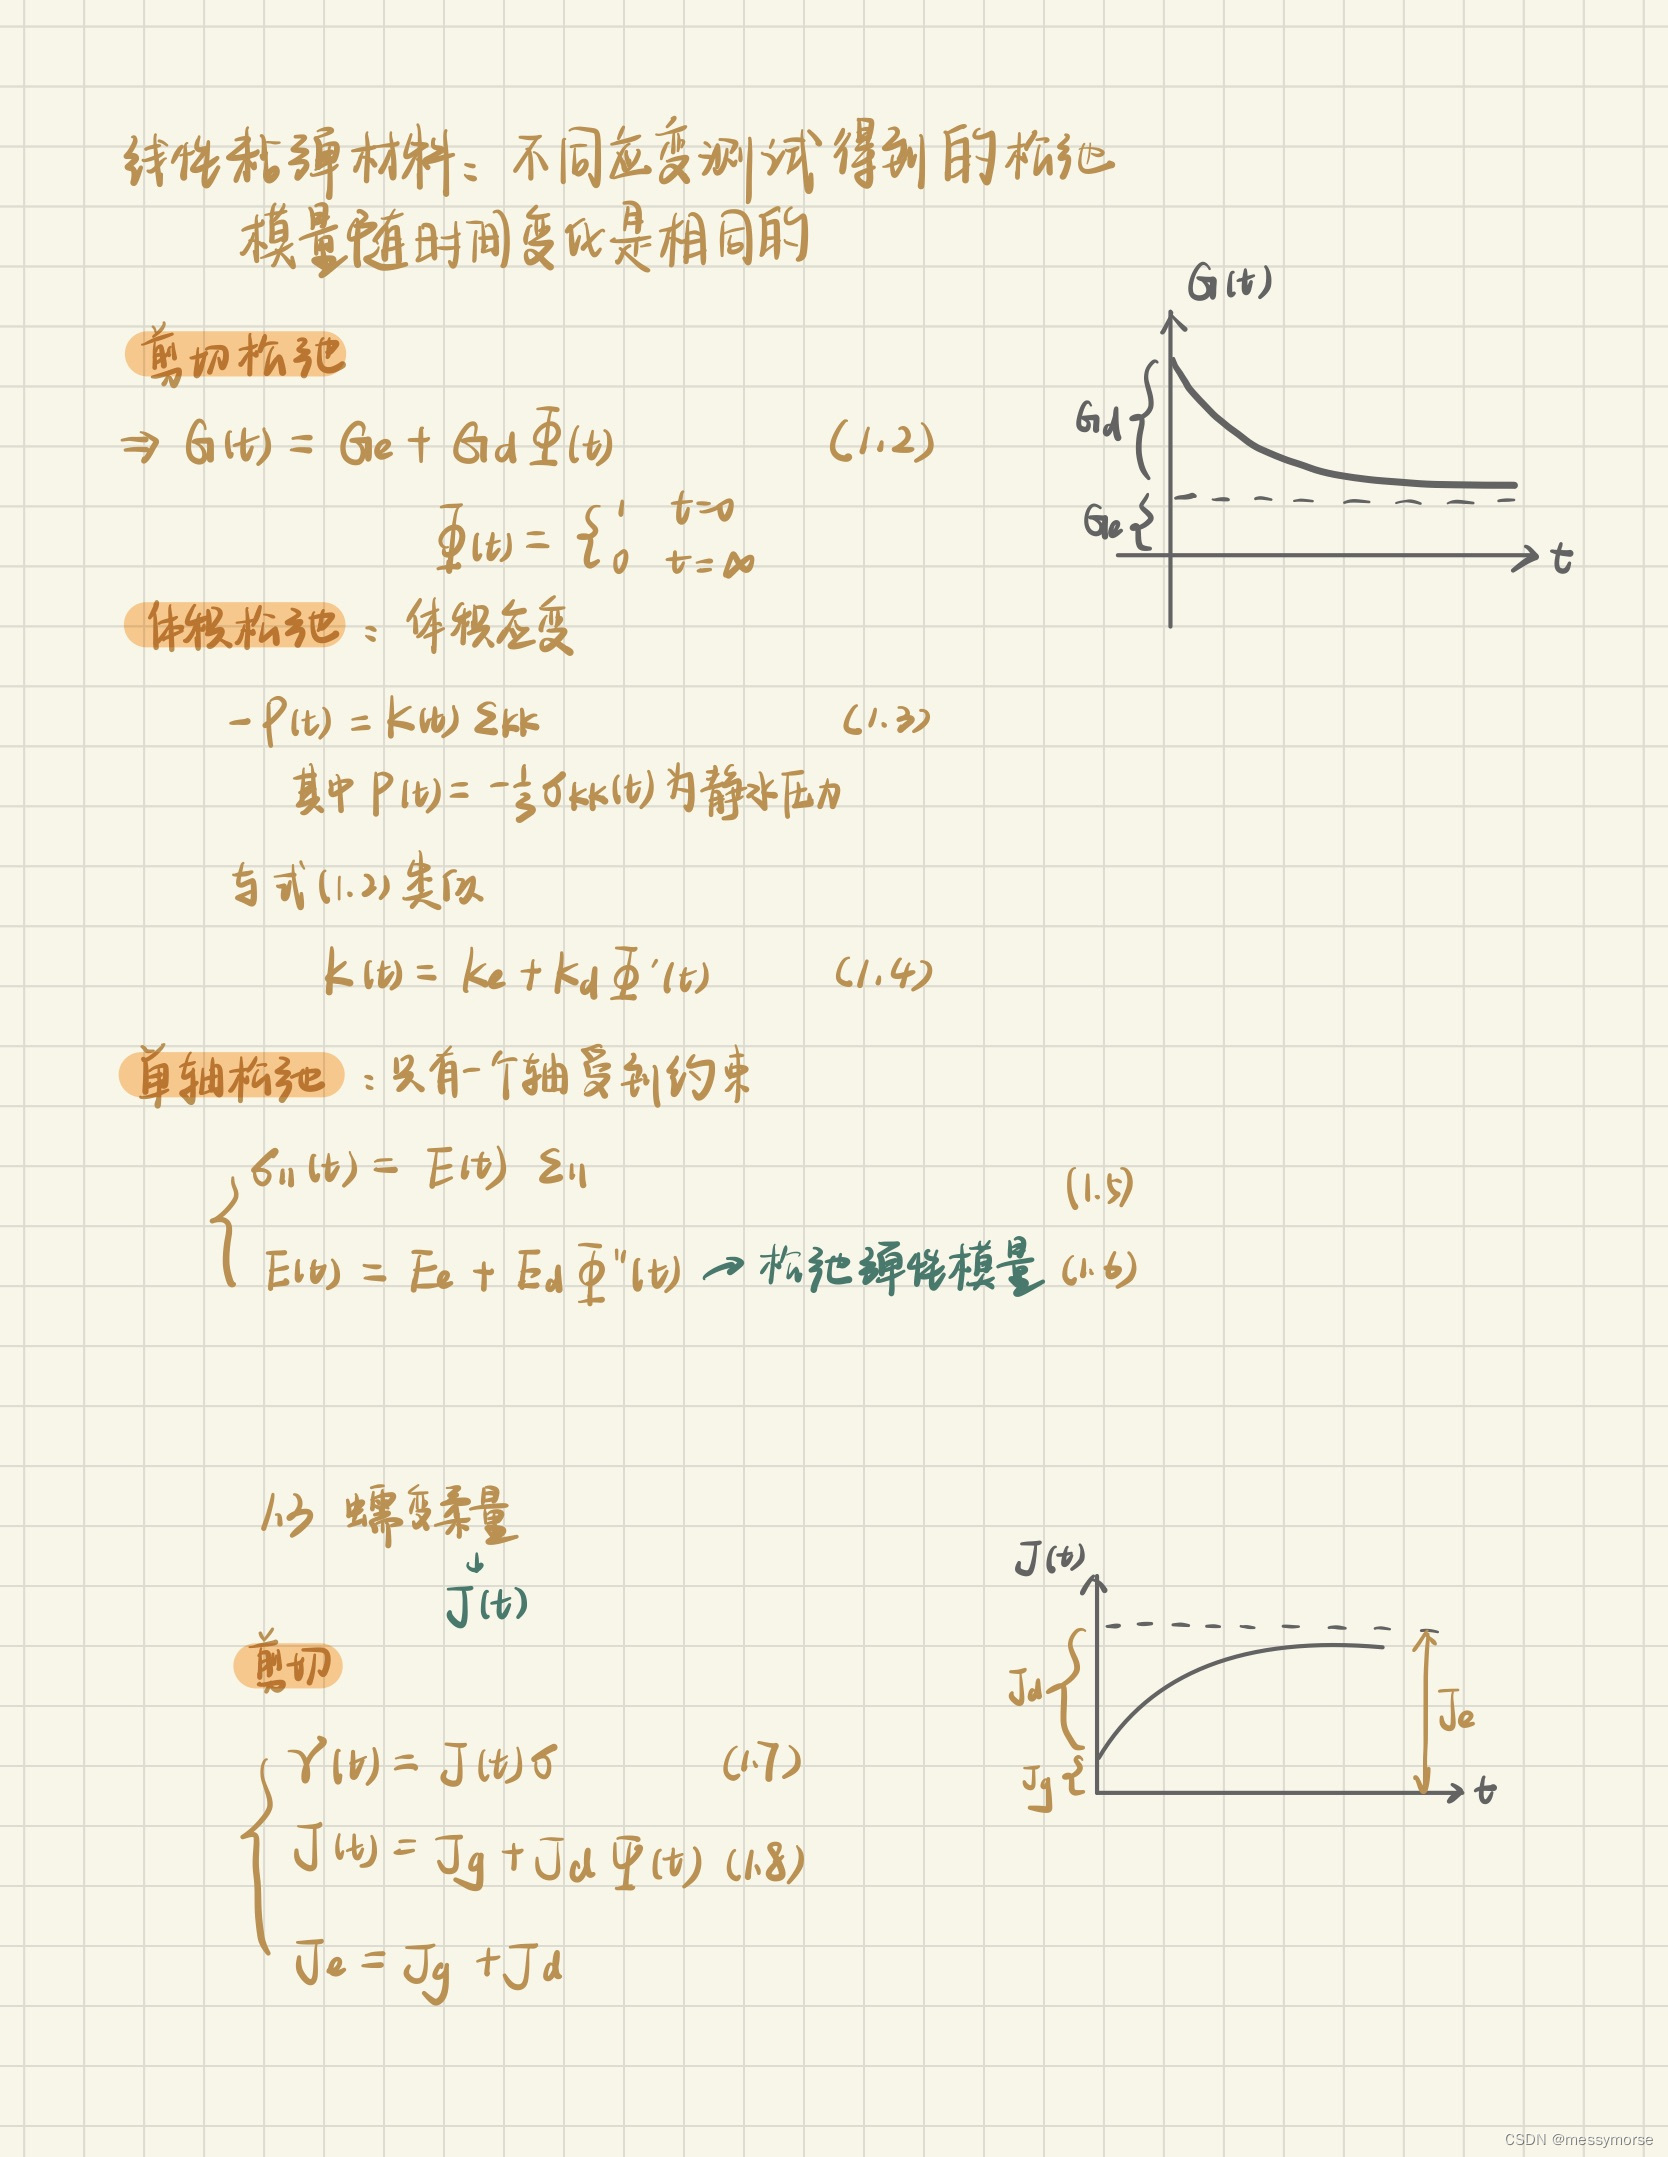 线性粘弹材料：不同应变测试得到的松弛
模量随时间变化是相同的
剪切松弛
⇒ G(t) = Ge + Gd Φ(t) (1.2)
Φ(t) = { 1 t=0
0 t=∞
G(t)
Gd
Ge
t
体积松弛：体积应变
-P(t) = K(t) εkk (1.3)
其中 P(t) = -1/3 σkk(t) 为静水压力
与式(1.2)类似
K(t) = Ke + Kd Φ'(t) (1.4)
单轴松弛：只有一个轴受到约束
σ11(t) = E(t) ε11 (1.5)
E(t) = Ee + Ed Φ''(t) → 松弛弹性模量 (1.6)
1.3 蠕变柔量
↓
J(t)
剪切
γ(t) = J(t)σ (1.7)
J(t) = Jg + Jd Ψ(t) (1.8)
Je = Jg + Jd
J(t)
Jd
Jg
Je
t
CSDN @messymorse